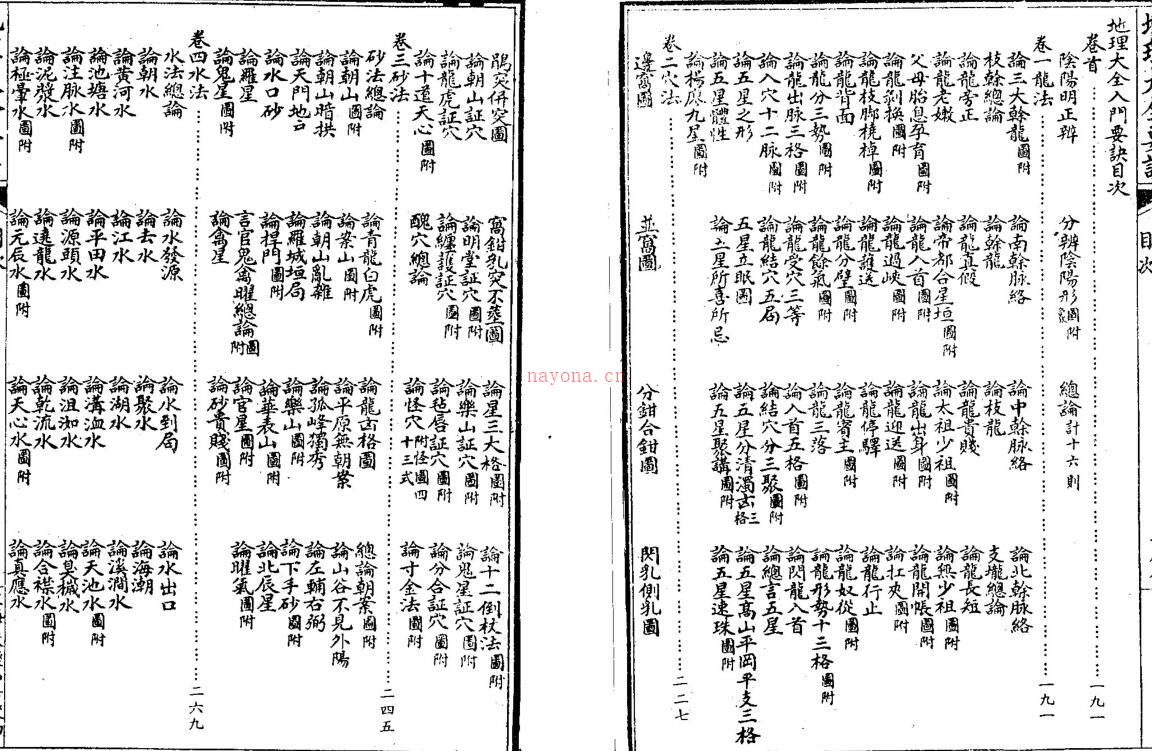 地理大全要訣 目次
地理大全入門要訣目次
卷首……一九一
陰陽明正辨 分辨陰陽形圖附 總論計十六則
卷一龍法……一九一
論三大幹龍圖附 論南幹脉絡 論中幹脉絡 論北幹脉絡
枝幹總論 論幹龍 論枝龍 支壠總論
論龍旁正 論龍真假 論龍貴賤 論龍長短
論龍老嫩 論帝都合星垣圖附 論太祖少祖圖附 論無少祖圖附
父母胎息孕育圖附 論龍入首圖附 論龍出身圖附 論龍開帳圖附
論龍剝換圖附 論龍過峽圖附 論龍迎送圖附 論扛夾圖附
論龍枝脚橈棹圖附 論龍護送 論龍停驛 論龍行止
論龍背面 論龍分壁圖附 論龍賓主圖附 論龍奴從圖附
論龍分三勢圖附 論龍餘氣圖附 論龍三落 論龍形勢十三格圖附
論龍出脉三格圖附 論龍受穴三等 論入首五格圖附 論閃龍入首
論入穴十二脉圖附 論龍結穴五局 論結穴分三聚圖附 論總言五星
論五星之形 五星五眠圖 論五星分清濁吉三格 論五星高山平岡平支三格
論五星體性 論土星所喜所忌 論五星聚講圖附 論五星速珠圖附
論楊廖九星圖附
卷二穴法……二二七
邊窩圖 並窩圖 分鉗合鉗圖 閃乳側乳圖
鶻突併突圖 窩鉗乳突不葬圖 論星三大格圖附 論十二倒杖法圖附
論朝山証穴 論明堂証穴圖附 論樂山証穴圖附 論鬼星証穴圖附
論龍虎証穴 論纏護証穴圖附 論毡唇証穴圖附 論分合証穴圖附
論十道天心圖附 醜穴總論 論怪穴附怪圖四十三式 論寸金法圖附
卷三砂法……二四五
砂法總論 論青龍白虎圖附 論龍吉格圖 總論朝案圖附
論朝山圖附 論案山圖附 論平原無朝案 論山谷不見外陽
論朝山暗拱 論朝山亂雜 論孤峰獨秀 論左輔右弼
論天門地戶 論羅城垣局 論樂山圖附 論下手砂圖附
論水口砂 論捍門圖附 論華表山圖附 論北辰星
論羅星 言官鬼禽曜總論圖附 論官星圖附 論曜氣圖附
論鬼星圖附 論禽星 論砂貴賤圖附
卷四水法……二六九
水法總論 論水發源 論水到局 論水出口
論朝水 論去水 論聚水 論海潮
論黃河水 論江水 論湖水 論溪澗水
論池塘水 論平田水 論溝洫水 論天池水圖附
論注脉水圖附 論源頭水 論沮洳水 論臭穢水
論泥漿水 論遠龍水 論乾流水 論合襟水圖附
論極暈水圖附 論元辰水圖附 論天心水圖附 論真應水
nayona.cn